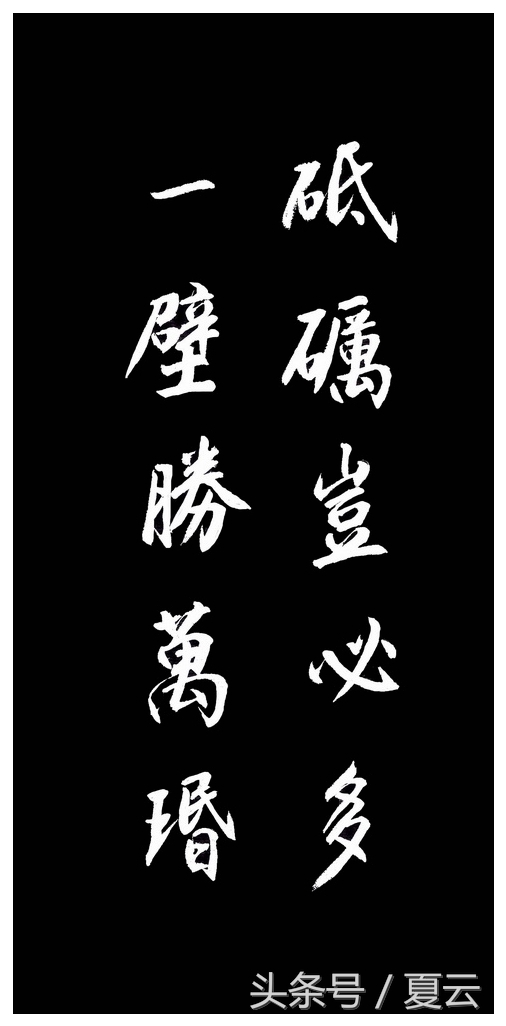 砥礪豈必多
一璧勝萬瑉
头条号 / 夏云